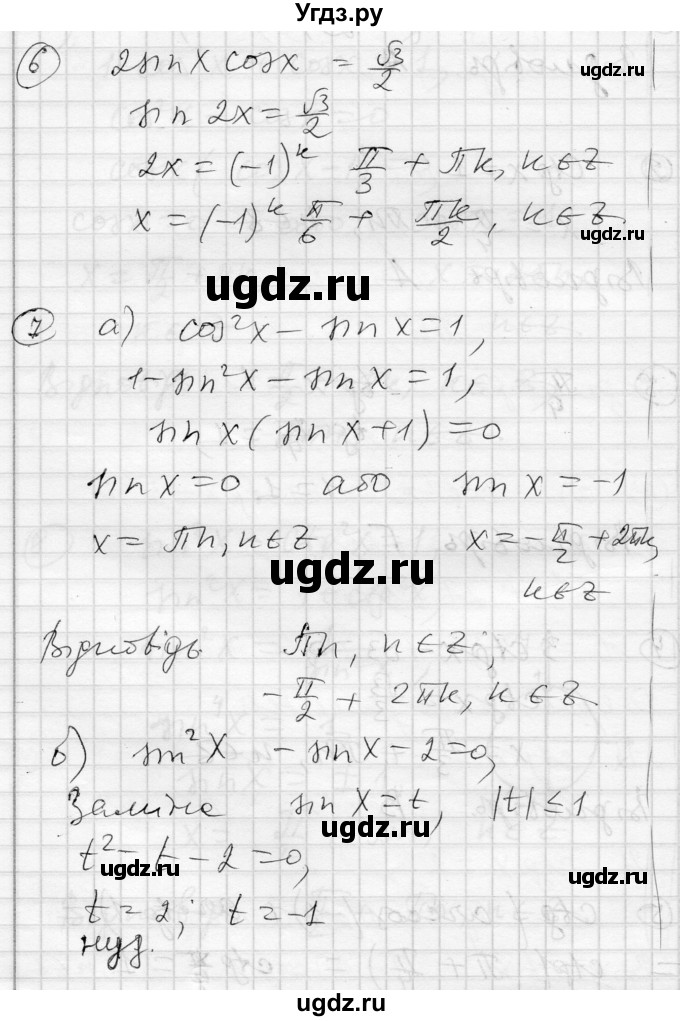 Угдз.ру
6 2sin x cos x = √3/2
ugdz.ru
sin 2x = √3/2
2x = (-1)^k π/3 + πk, k∈Z
x = (-1)^k π/6 + πk/2, k∈Z.
ugdz.ru
ugdz.ru
7 а) cos²x - sin x = 1,
1 - sin²x - sin x = 1,
ugdz.ru
sin x (sin x + 1) = 0
sin x = 0 або sin x = -1
x = πn, n∈Z x = -π/2 + 2πk,
ugdz.ru
k∈Z
Відповідь πn, n∈Z,
ugdz.ru
-π/2 + 2πk, k∈Z.
б) sin²x - sin x - 2 = 0,
ugdz.ru
Заміна sin x = t, |t| ≤ 1
ugdz.ru
t² - t - 2 = 0,
ugdz.ru
ugdz.ru
t = 2; t = -1
нуз.
ugdz.ru
ugdz.ru